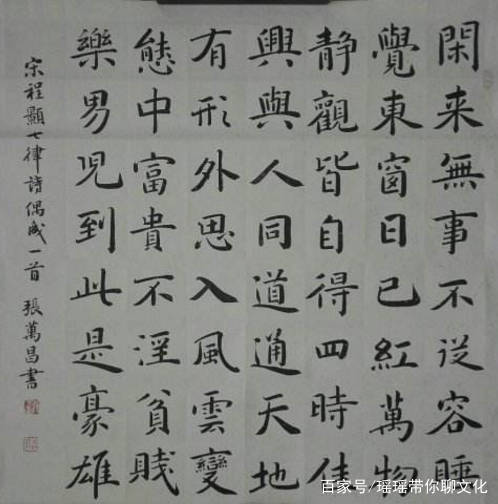 閑来無事不從容睡
覺東窗日已紅萬物
静觀皆自得四時佳
興與人同道通天地
有形外思入風雲變
態中富貴不淫貧賤
樂男児到此是豪雄
宋程顥七律詩偶成一首 張萬昌書
百家号/瑶瑶带你聊文化